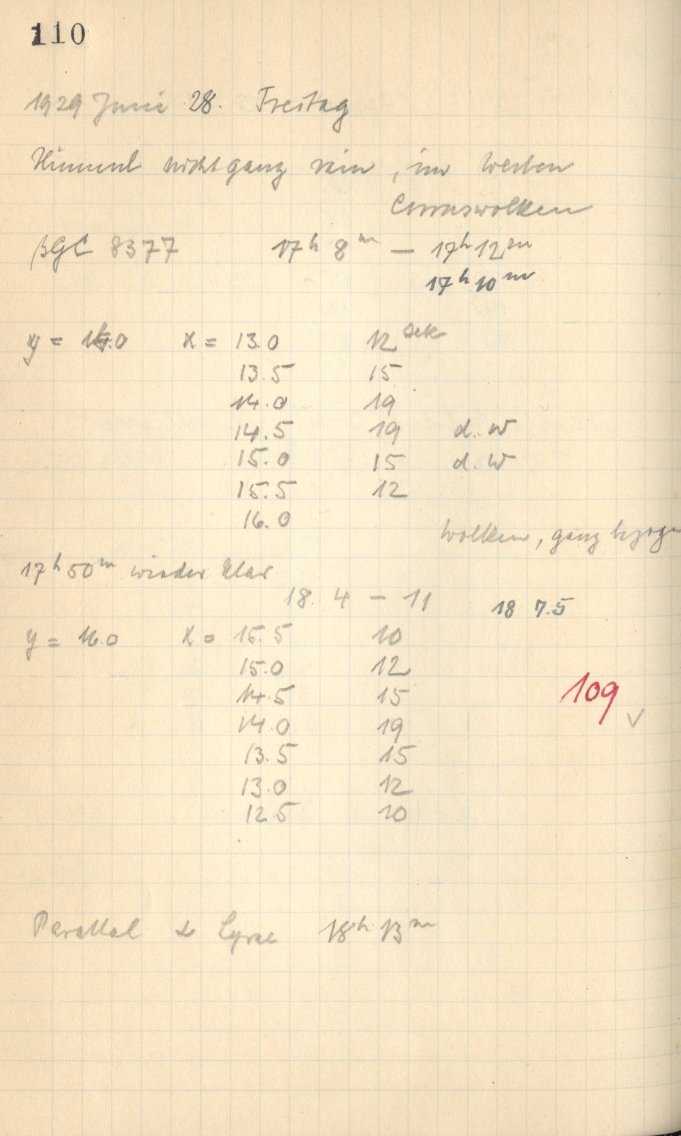 110
1929 Juni 28. Freitag
Himmel nicht ganz rein, im Westen
Cirruswolken
βGC 8377 17h 8m — 17h 12m
17h 10m
y = 14.0 x = 13.0 12 Sek
13.5 15
14.0 19
14.5 19 d. W
15.0 15 d. W
15.5 12
16.0
Wolken, ganz bezogen
17h 50m wieder klar
18. 4 — 11 18 7.5
y = 16.0 x = 15.5 10
15.0 12
14.5 15
109 ✓
14.0 19
13.5 15
13.0 12
12.5 10
Parallel α Lyrae 18h 13m